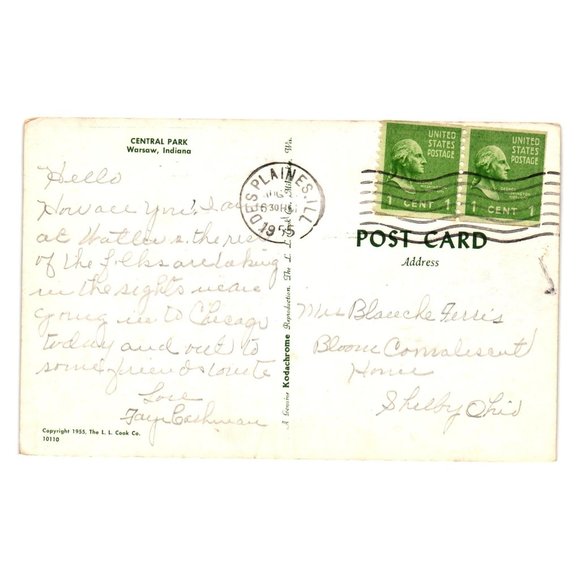 CENTRAL PARK
Warsaw, Indiana
Hello
How are You, I am
at Walter s. the rest
of the folks are taking
in the sights we are
going in to Chicago
today and out to
some friends
Love
Faye Cashman
Copyright 1955, The L. L. Cook Co.
10110
A Genuine Kodachrome Reproduction. The L. L. Cook Co. Milwaukee, Wis.
DES PLAINES, ILL.
630
1955
UNITED
STATES
POSTAGE
1 CENT 1
UNITED
STATES
POSTAGE
1 CENT 1
POST CARD
Address
Mrs Blanche Ferris
Bloom Convalescent
Home
Shelby Ohio